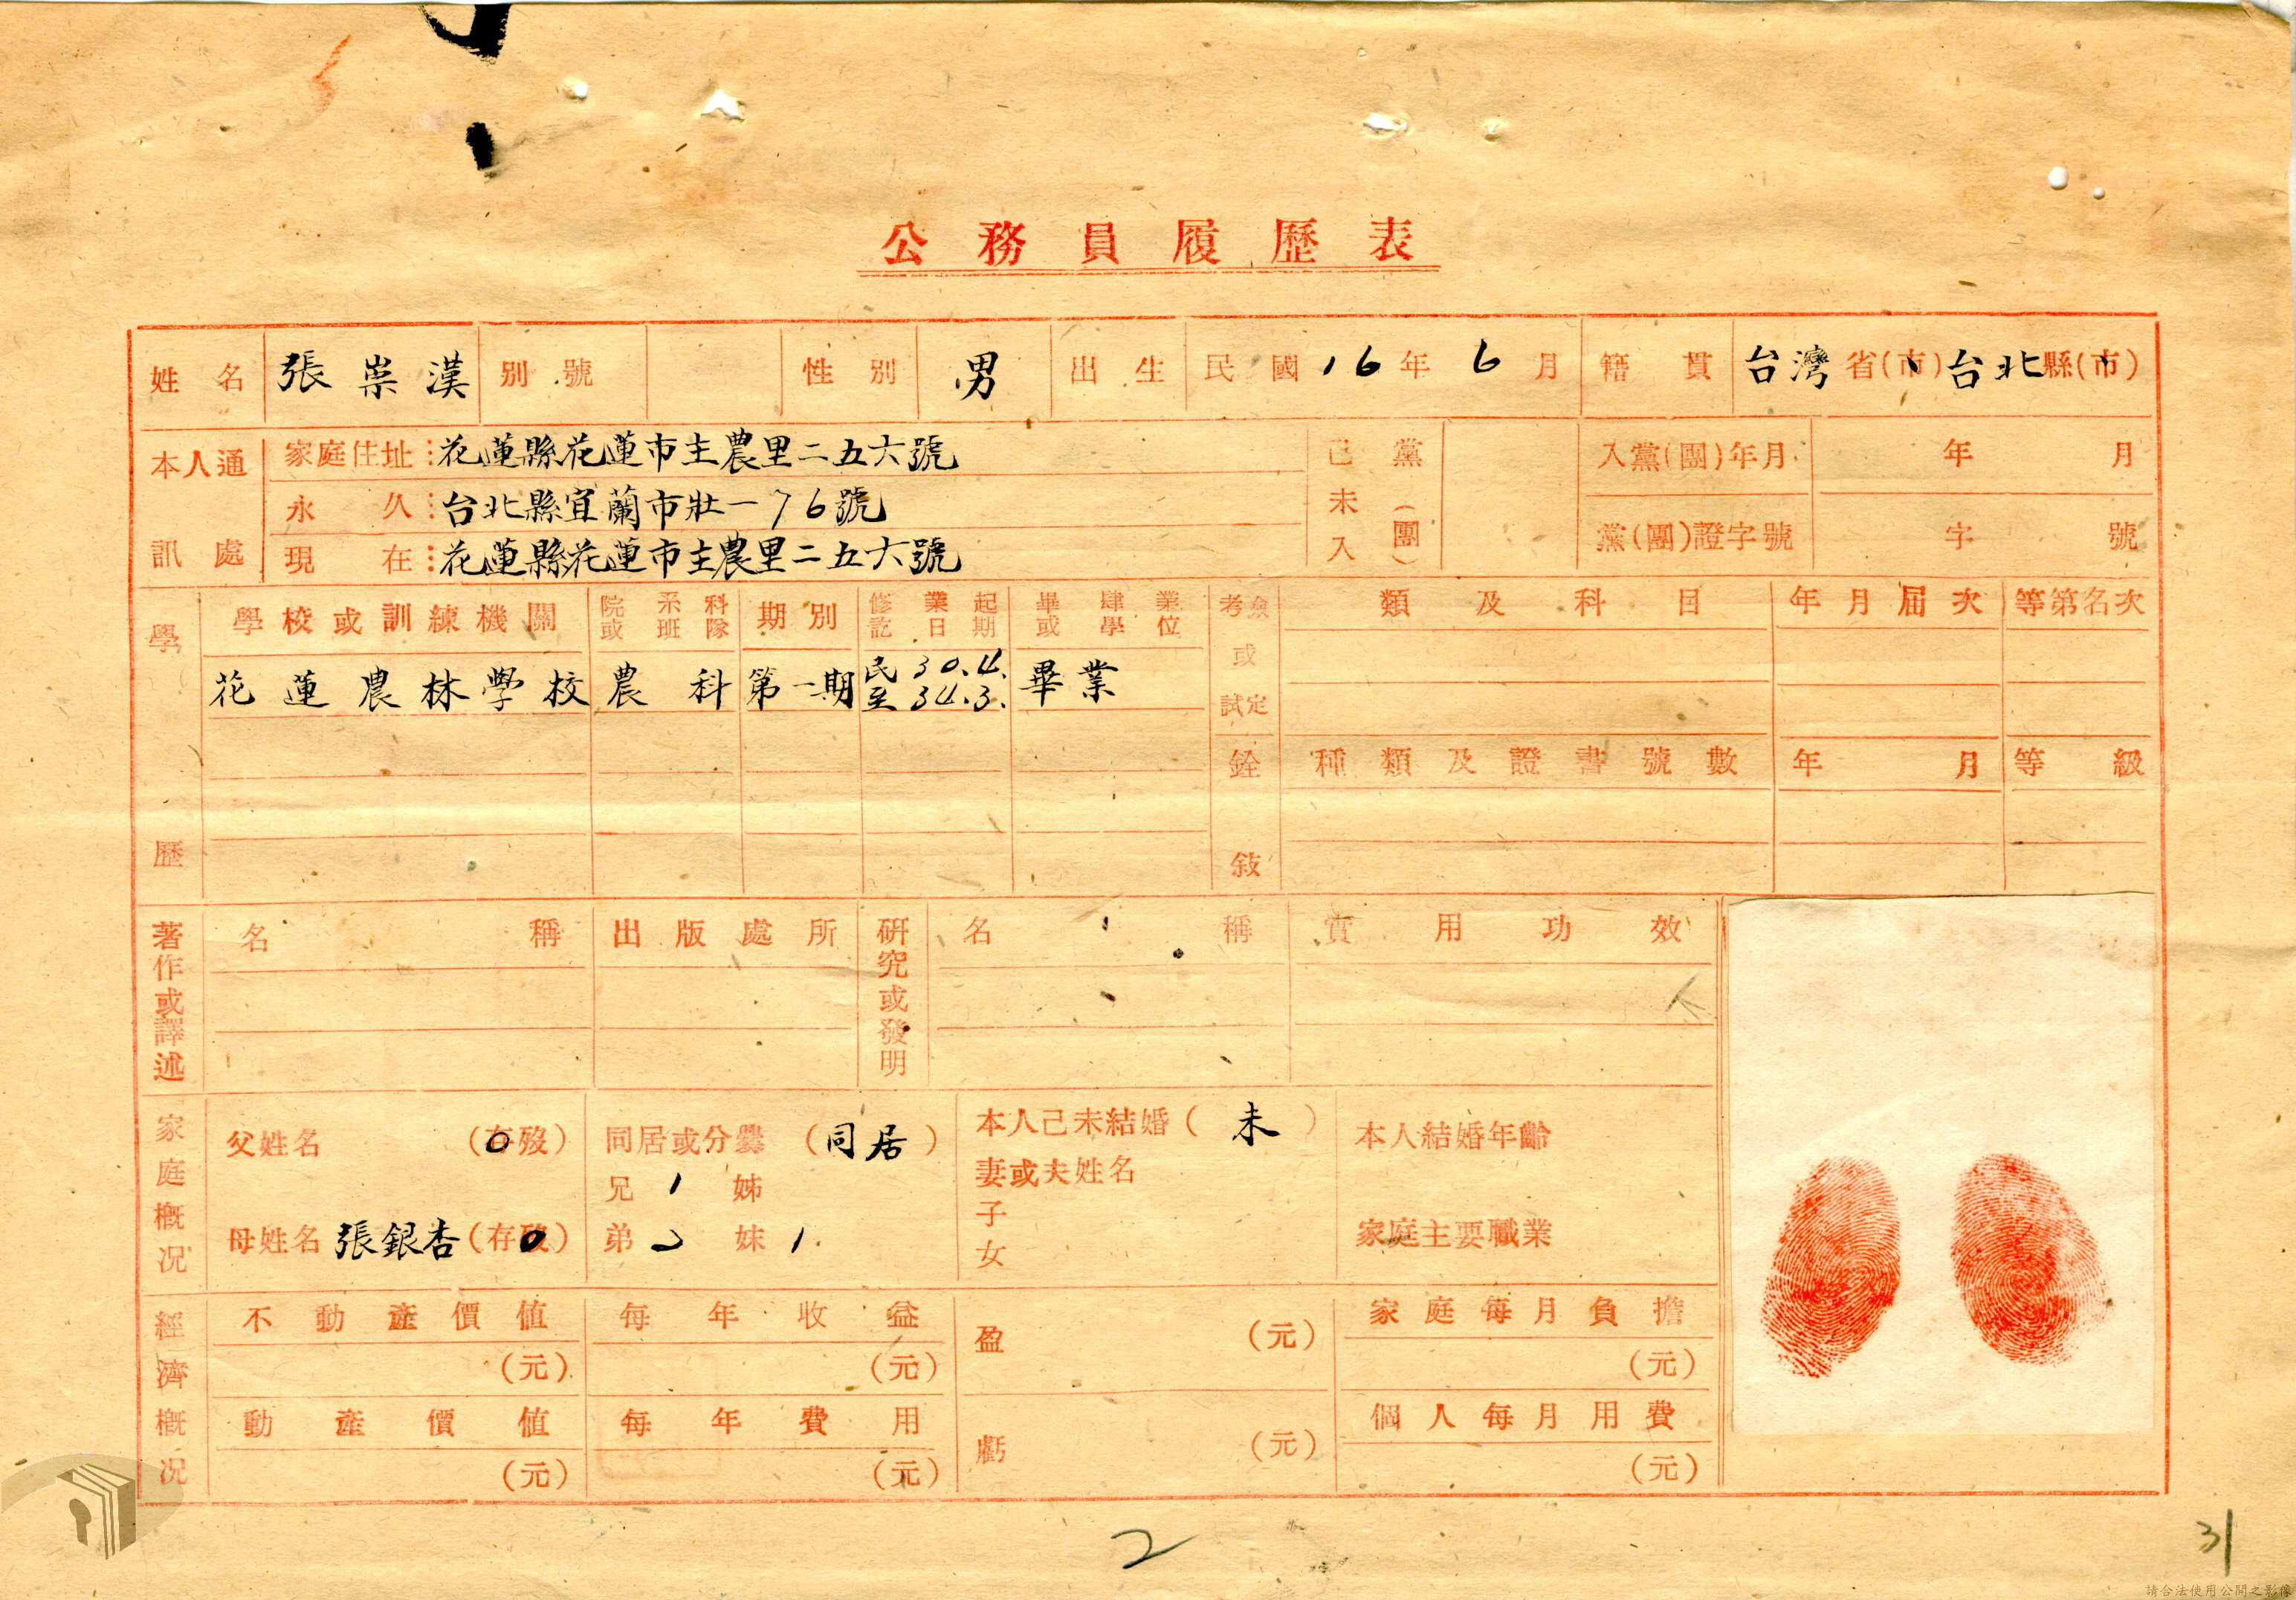 公務員履歷表
姓名 張崇漢 別號 性別 男 出生 民國16年6月 籍貫 台灣省(市)台北縣(市)
本人通訊處
家庭住址：花蓮縣花蓮市主農里二五六號
永久：台北縣宜蘭市壯一76號
現在：花蓮縣花蓮市主農里二五六號
已未入黨(團)
入黨(團)年月 年 月
黨(團)證字號 字 號
學歷
學校或訓練機關 院系科或班隊 期別 修業起訖日期 畢肄業或學位
花蓮農林學校 農科 第一期 民30.4.至34.3. 畢業
考試或檢定 類及科目 年月屆次 等第名次
銓敘 種類及證書號數 年月 等級
著作或譯述 名稱 出版處所
研究或發明 名稱 實用功效
家庭概況
父姓名 (存歿) 同居或分爨(同居) 本人已未結婚(未) 本人結婚年齡
兄1 姊 妻或夫姓名
子
母姓名 張銀杏(存歿) 弟2 妹1 家庭主要職業
女
經濟概況
不動產價值 每年收益 盈(元) 家庭每月負擔
(元) (元) (元)
動產價值 每年費用 虧(元) 個人每月用費
(元) (元) (元)
2
31
請合法使用公開之影像